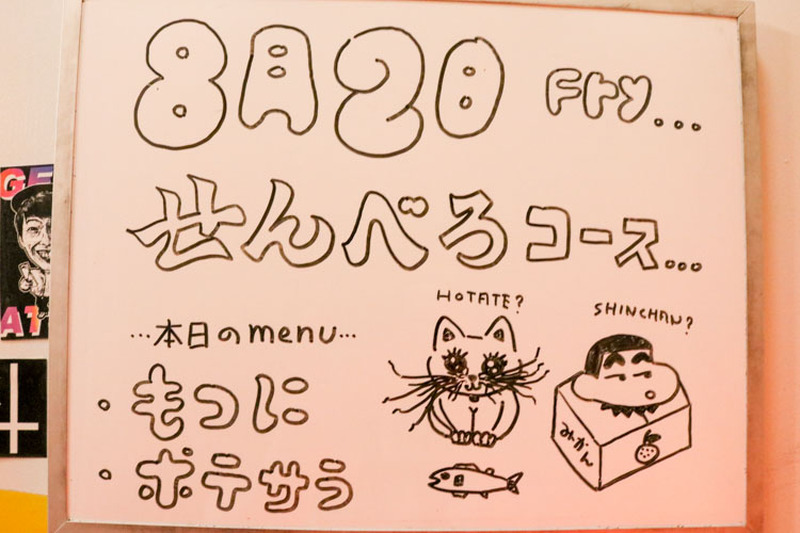 8月20 Fry...
せんべろコース...
HOTATE?
SHINCHAN?
...本日のmenu...
・もつに
・ポテサラ
みかん